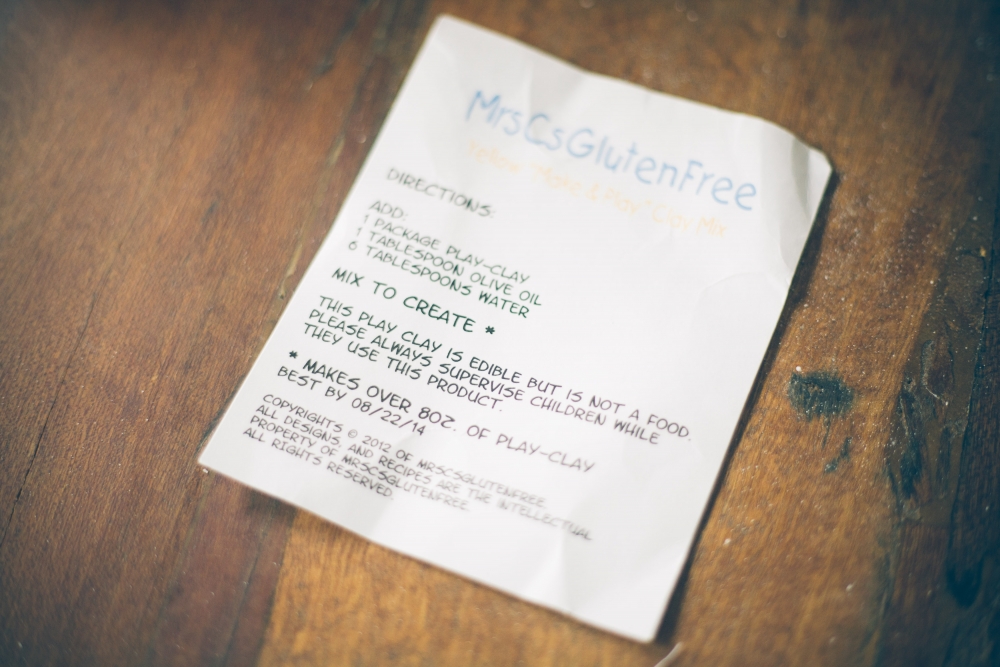 MrsCsGlutenFree
Yellow "Make & Play" Clay Mix
DIRECTIONS:
ADD:
1 PACKAGE PLAY-CLAY
1 TABLESPOON OLIVE OIL
6 TABLESPOONS WATER
MIX TO CREATE *
THIS PLAY CLAY IS EDIBLE BUT IS NOT A FOOD.
PLEASE ALWAYS SUPERVISE CHILDREN WHILE
THEY USE THIS PRODUCT.
* MAKES OVER 8OZ. OF PLAY-CLAY
BEST BY 08/22/14
COPYRIGHTS © 2012 OF MRSCSGLUTENFREE.
ALL DESIGNS, AND RECIPES ARE THE INTELLECTUAL
PROPERTY OF MRSCSGLUTENFREE.
ALL RIGHTS RESERVED.